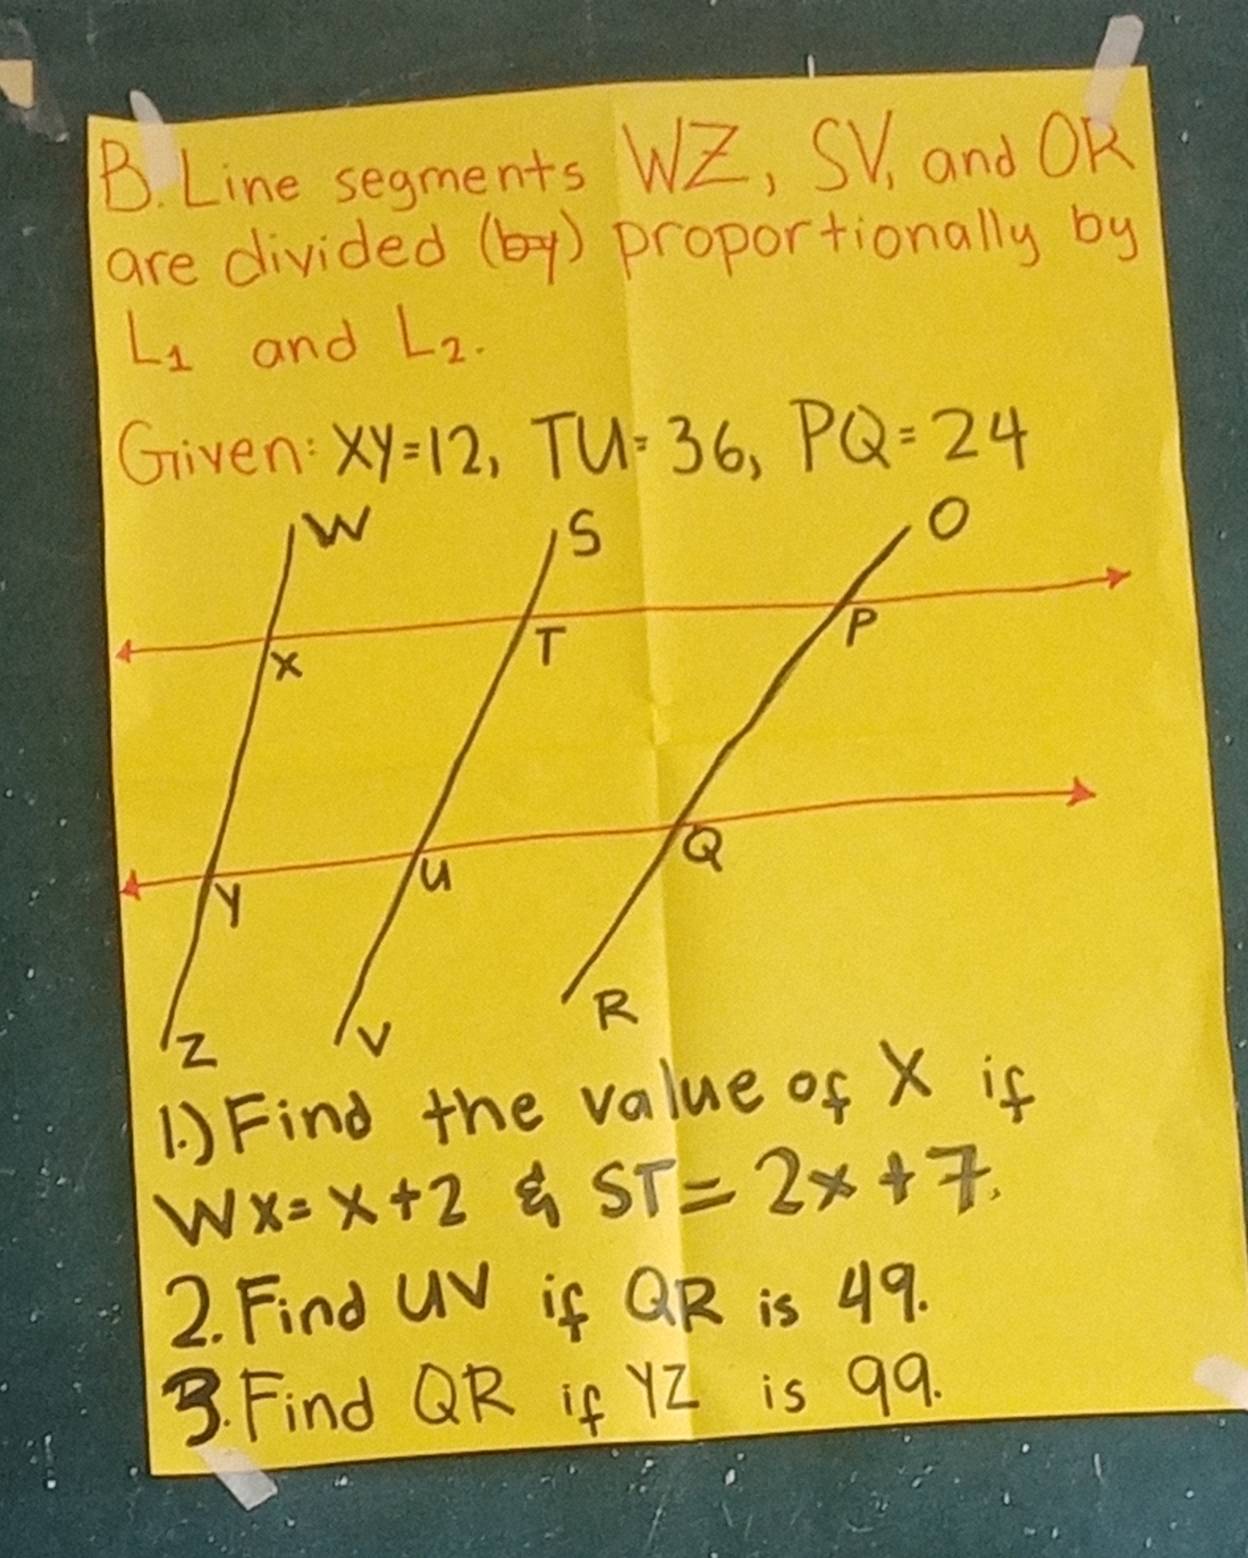 B. Line segments WZ, SV, and OR
are divided (by) proportionally by
L1 and L2.
Given: XY=12, TU=36, PQ=24
W S O
X T P
Y U Q
Z V R
1.) Find the value of X if
WX=X+2 & ST=2x+7.
2. Find UV if QR is 49.
3. Find QR if YZ is 99.